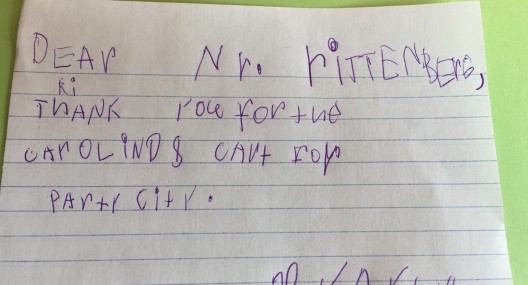 DEAr Nr. rITTENBErG,
ki
THANK You for the
CArOLIND8 CArt For
PArty City.